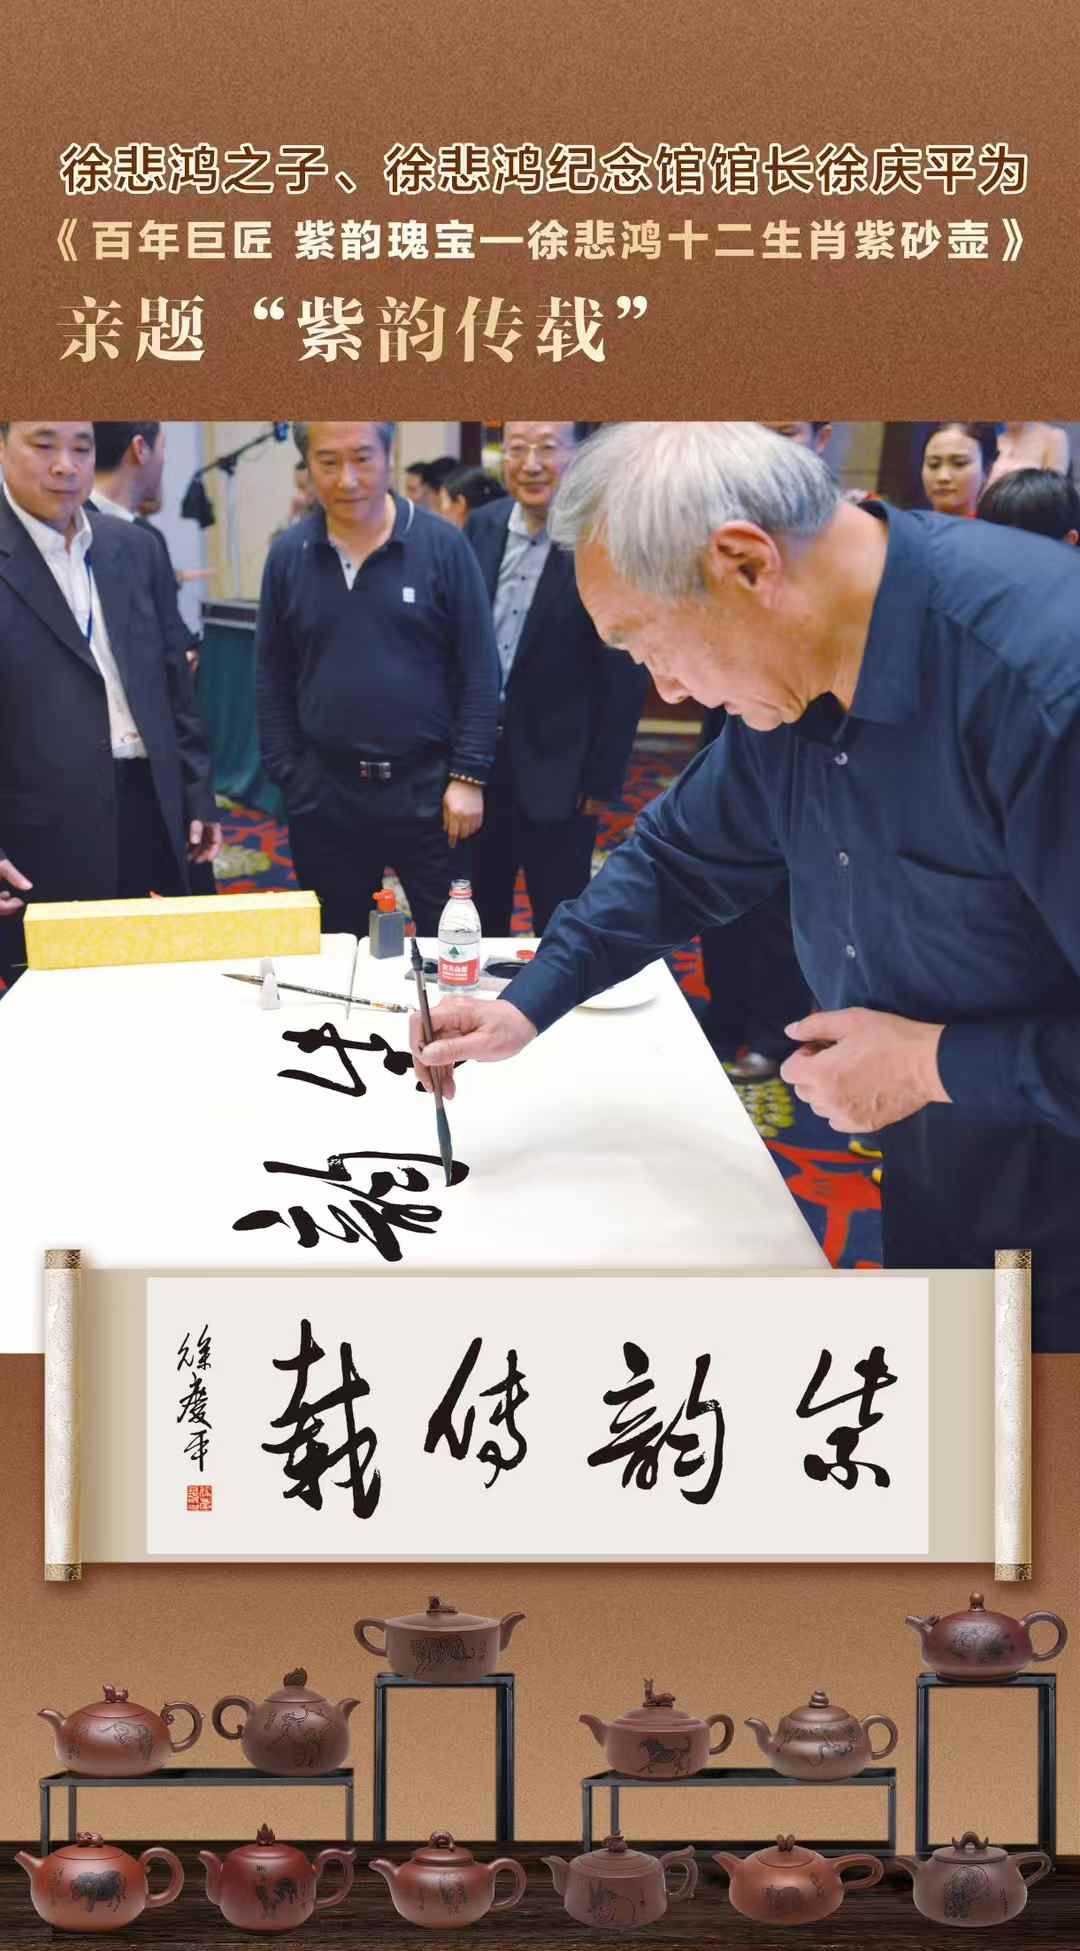 徐悲鸿之子、徐悲鸿纪念馆馆长徐庆平为
《百年巨匠 紫韵瑰宝—徐悲鸿十二生肖紫砂壶》
亲题“紫韵传载”
紫韵
載傳韵紫
徐慶平